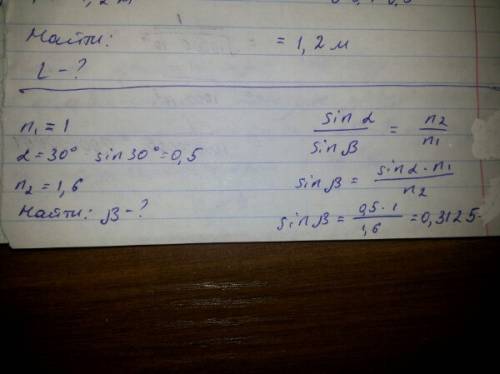 Найти:
= 1,2 м
L - ?
n₁ = 1
α = 30° sin 30° = 0,5
n₂ = 1,6
Найти: β - ?
sin α / sin β = n₂ / n₁
sin β = sin α · n₁ / n₂
sin β = 0,5 · 1 / 1,6 = 0,3125